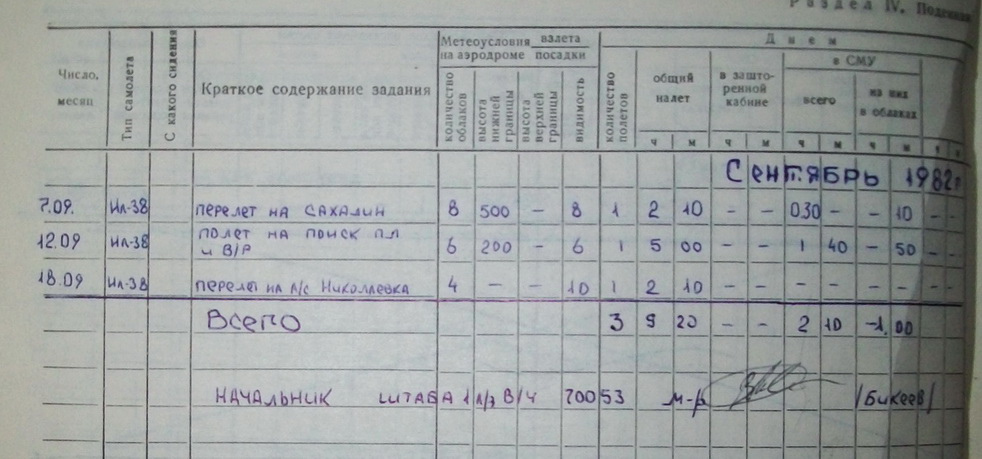 Раздел IV.
Метеоусловия взлета Днем
на аэродроме посадки в СМУ
Число, месяц Тип самолета С какого сидения Краткое содержание задания количество облаков высота нижней границы высота верхней границы видимость количество полетов общий налет в зашто-ренной кабине всего из них в облаках
ч м ч м ч м
Сентябрь 1982г
7.09. Ил-38 перелет на Сахалин 8 500 - 8 1 2 10 - - 030 - - 10 - -
12.09 Ил-38 полет на поиск пл и В/Р 6 200 - 6 1 5 00 - - 1 40 - 50 - -
18.09 Ил-38 перелет на А/с Николаевка 4 - - 10 1 2 10 - - - - - - - -
Всего 3 9 20 - - 2 10 -1. 00
Начальник штаба 1 В/Ч 70053 м-р /Бикеев/